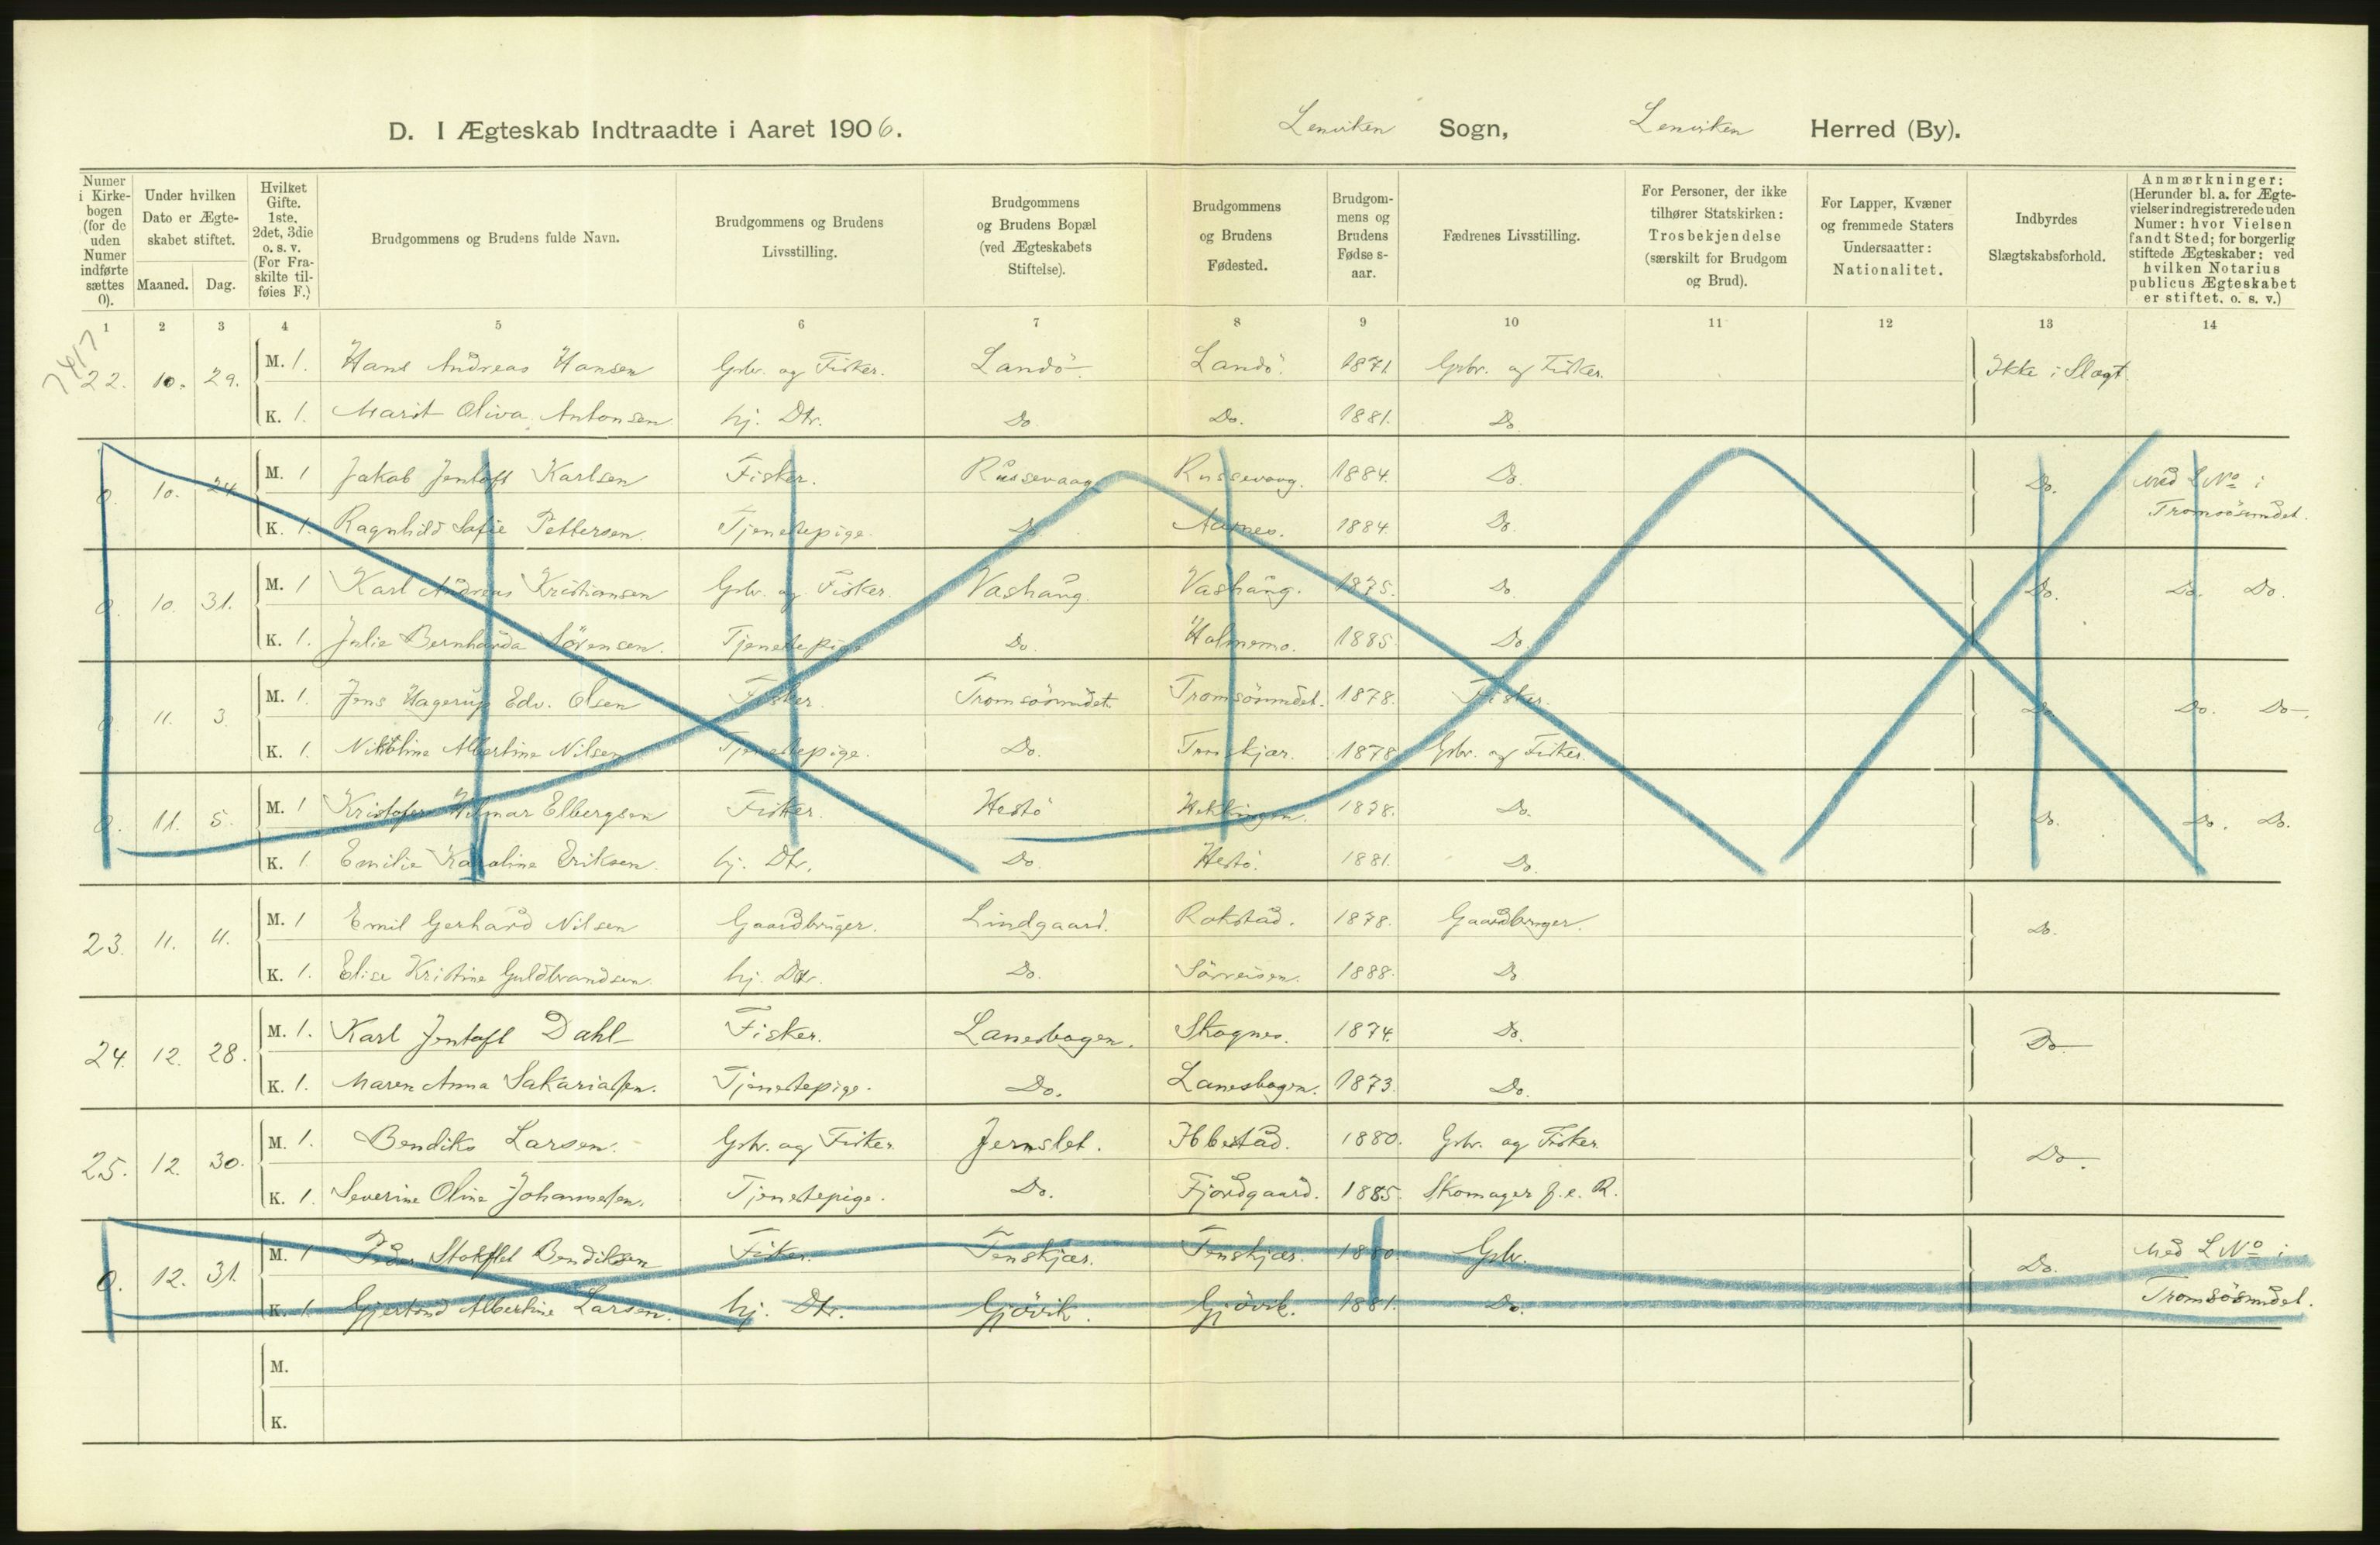 D. I Ægteskab Indtraadte i Aaret 1906. Lenviken Sogn, Lenviken Herred (By).
Numer i Kirkebogen (for de uden Numer indførte sættes 0).
Under hvilken Dato er Ægteskabet stiftet.
Maaned. Dag.
Hvilket Gifte. 1ste, 2det, 3die o. s. v. (For Fraskilte tilføies F.)
Brudgommens og Brudens fulde Navn.
Brudgommens og Brudens Livsstilling.
Brudgommens og Brudens Bopæl (ved Ægteskabets Stiftelse).
Brudgommens og Brudens Fødested.
Brudgommens og Brudens Fødse s-aar.
Fædrenes Livsstilling.
For Personer, der ikke tilhører Statskirken: Trosbekjendelse (særskilt for Brudgom og Brud).
For Lapper, Kvæner og fremmede Staters Undersaatter: Nationalitet.
Indbyrdes Slægtskabsforhold.
Anmærkninger: (Herunder bl. a. for Ægtevielser indregistrerede uden Numer: hvor Vielsen fandt Sted; for borgerlig stiftede Ægteskaber: ved hvilken Notarius publicus Ægteskabet er stiftet, o. s. v.)
1 2 3 4 5 6 7 8 9 10 11 12 13 14
7417
22. 10. 29. M. 1. Hans Andreas Hansen Gbr. og Fisker. Landö. Landö. 1871 Gbr. og Fisker. Ikke i Slægt
K. 1. Marit Oliva Antonsen hj. Dtr. Do. Do. 1881. Do.
0. 10. 24 M. 1 Jakob Jentoft Karlsen Fisker. Russevaag Russevaag. 1884. Do. Do. med L No i
K. 1. Ragnhild Sofie Pettersen. Tjenestepige. Do Aarnes. 1884. Do. Tromsösundet.
0. 10. 31. M. 1 Karl Andreas Kristiansen Gbr. og Fisker. Vashaug. Vashaug. 1875. Do. Do. Do. Do.
K. 1. Julie Bernharda Sörensen. Tjenestepige Do. Holmemo. 1885 Do.
0. 11. 3. M. 1. Jens Hagerup Edv. Olsen Fisker. Tromsösundet. Tromsösundet. 1878. Fisker. Do Do. Do.
K. 1. Nikoline Albertine Nilsen Tjenestepige. Do. 1878 Gbr. og Fisker.
0. 11. 5. M. 1 Kristofer Hilmar Elbergsen Fisker. Hestö Hekkingen. 1878. Do. Do. Do. Do.
K. 1 Emilie Karoline Eriksen. hj. Dtr. Do. Hestö. 1881. Do.
23. 11. 11. M. 1 Emil Gerhard Nilsen Gaardbruger. Lindgaard. Rokstad. 1878. Gaardbruger. Do.
K. 1. Elise Kristine Guldbrandsen. hj. Dtr. Do. Sörreisen. 1888. Do
24. 12. 28. M. 1. Karl Jentoft Dahl Fisker. Lanesbogen. Skognes. 1874. Do. Do
K. 1. Maren Anna Sakariassen. Tjenestepige. Do. Lanesbogen. 1873 Do.
25. 12. 30. M. 1. Bendiks Larsen. Gbr. og Fisker Jernslet. Ibbestad. 1880. Gbr. og Fisker Do.
K. 1 Severine Oline Johannessen. Tjenestepige. Do. Fjordgaard. 1885. Skomager f. e. R.
0. 12. 31. M. 1 Peder Stokflet Bendiksen Fisker. Tenskjær. Tenskjær. 1880 Gbr. Do. Med L No i
K. 1. Gjertine Albertine Larsen. hj. Dtr. Gjövik. Gjövik. 1881. Do. Tromsösundet.
M.
K.